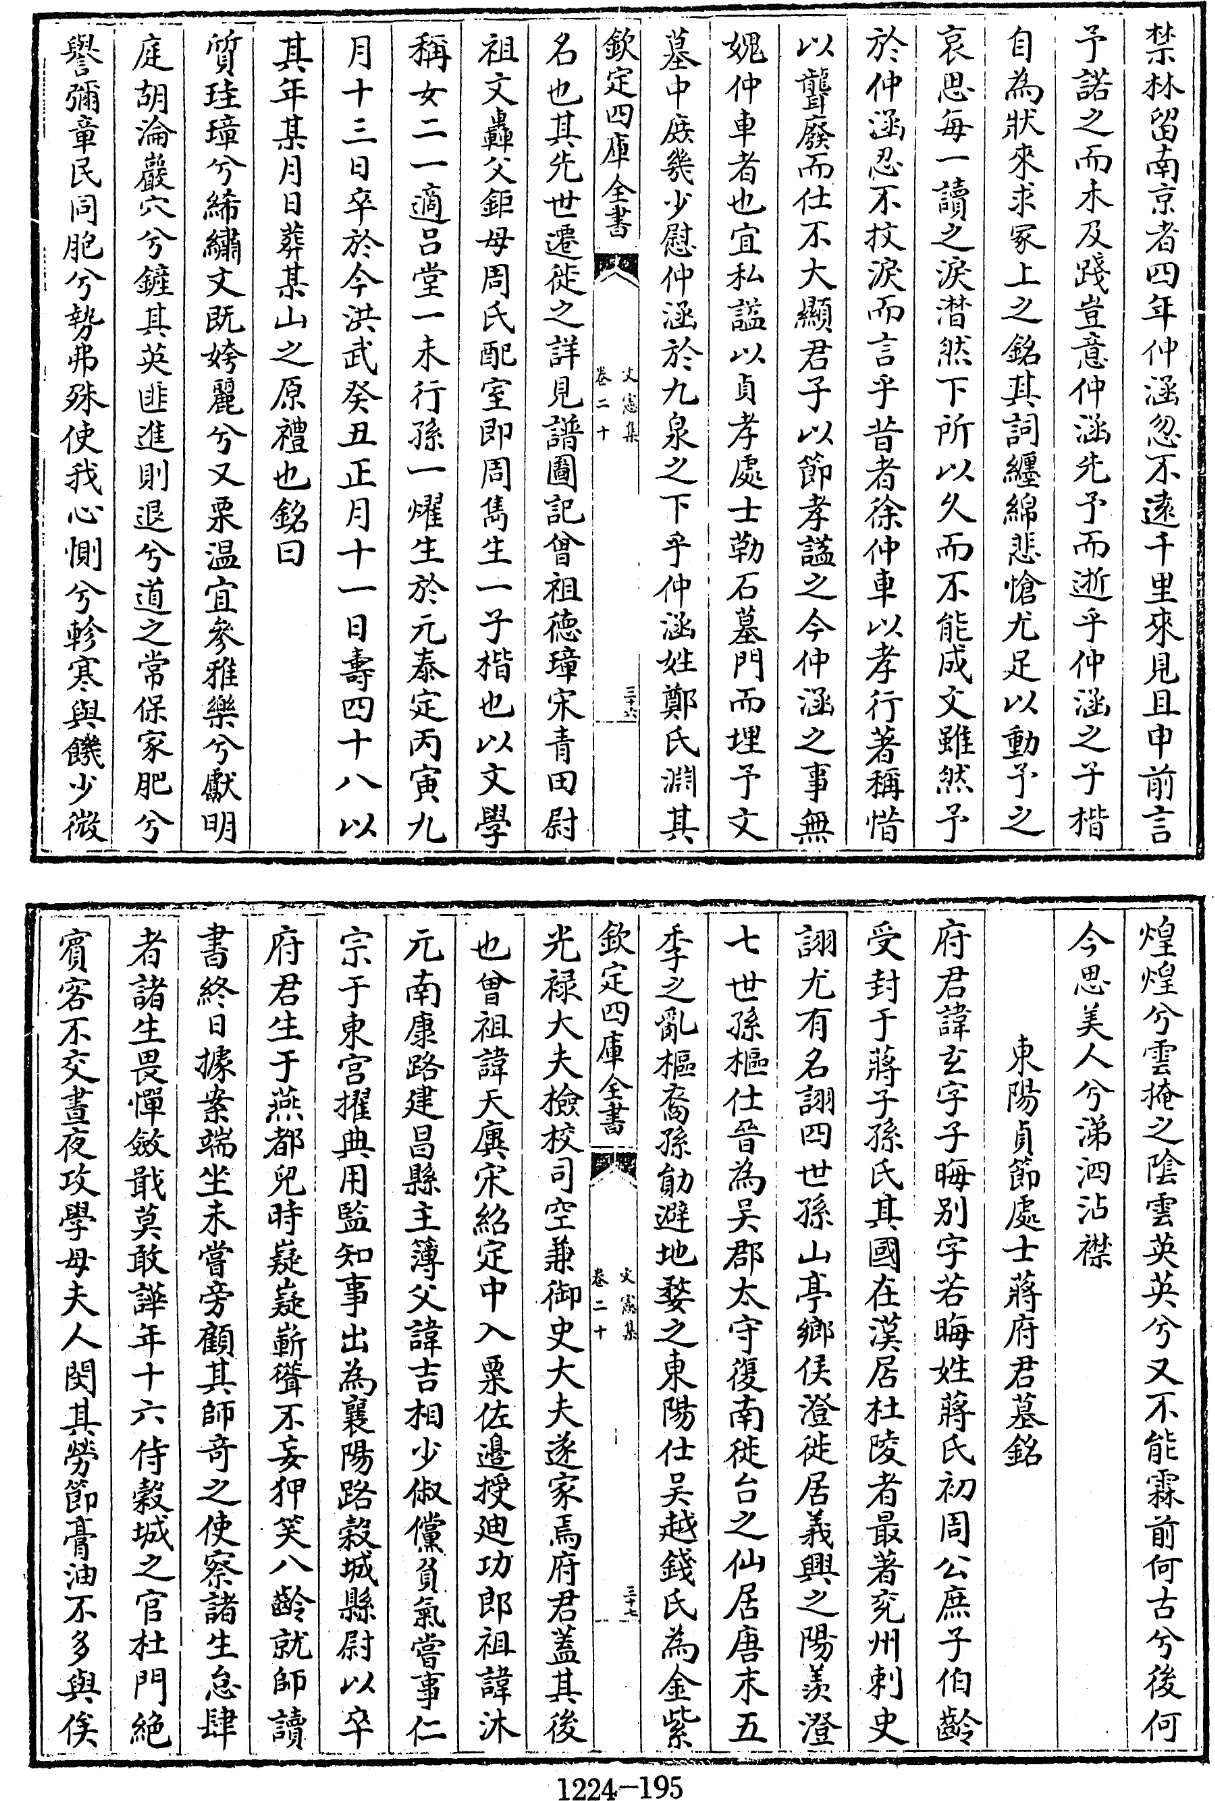 禁林留南京者四年仲涵忽不遠千里來見且申前言
予諾之而未及踐豈意仲涵先予而逝乎仲涵之子楷
自為狀來求冢上之銘其詞纏綿悲愴尤足以動予之
哀思每一讀之淚潸然下所以久而不能成文雖然予
於仲涵忍不抆淚而言乎昔者徐仲車以孝行著稱惜
以聾廢而仕不大顯君子以節孝諡之今仲涵之事無
媿仲車者也宜私謚以貞孝處士勒石墓門而埋予文
墓中庶幾少慰仲涵於九泉之下乎仲涵姓鄭氏淵其
欽定四庫全書
文憲集
卷二十
三十六
名也其先世遷徙之詳見譜圖記曾祖德璋宋青田尉
祖文轟父鉅母周氏配室即周雋生一子楷也以文學
稱女二一適呂堂一未行孫一燿生於元泰定丙寅九
月十三日卒於今洪武癸丑正月十一日壽四十八以
其年某月日葬某山之原禮也銘曰
質珪璋兮絺繡文既姱麗兮又栗温宜參雅樂兮獻明
庭胡淪巖穴兮鏟其英匪進則退兮道之常保家肥兮
譽彌章民同胞兮勢弗殊使我心惻兮軫寒與饑少微
煌煌兮雲掩之陰雲英英兮又不能霖前何古兮後何
今思美人兮涕泗沾襟
東陽貞節處士蔣府君墓銘
府君諱玄字子晦别字若晦姓蔣氏初周公庶子伯齡
受封于蔣子孫氏其國在漢居杜陵者最著兖州刺史
詡尤有名詡四世孫山亭鄉侯澄徙居義興之陽羨澄
七世孫樞仕晉為吳郡太守復南徙台之仙居唐末五
季之亂樞裔孫勛避地婺之東陽仕吳越錢氏為金紫
欽定四庫全書
文憲集
卷二十
三十七
光禄大夫檢校司空兼御史大夫遂家焉府君蓋其後
也曾祖諱天廙宋紹定中入粟佐邊授廸功郎祖諱沐
元南康路建昌縣主簿父諱吉相少俶儻負氣嘗事仁
宗于東宫擢典用監知事出為襄陽路榖城縣尉以卒
府君生于燕都兒時嶷嶷嶄聳不妄狎笑八齡就師讀
書終日據案端坐未嘗旁顧其師奇之使察諸生怠肆
者諸生畏憚斂戢莫敢譁年十六侍榖城之官杜門絶
賓客不交晝夜攻學母夫人閔其勞節膏油不多與俟
1224-195